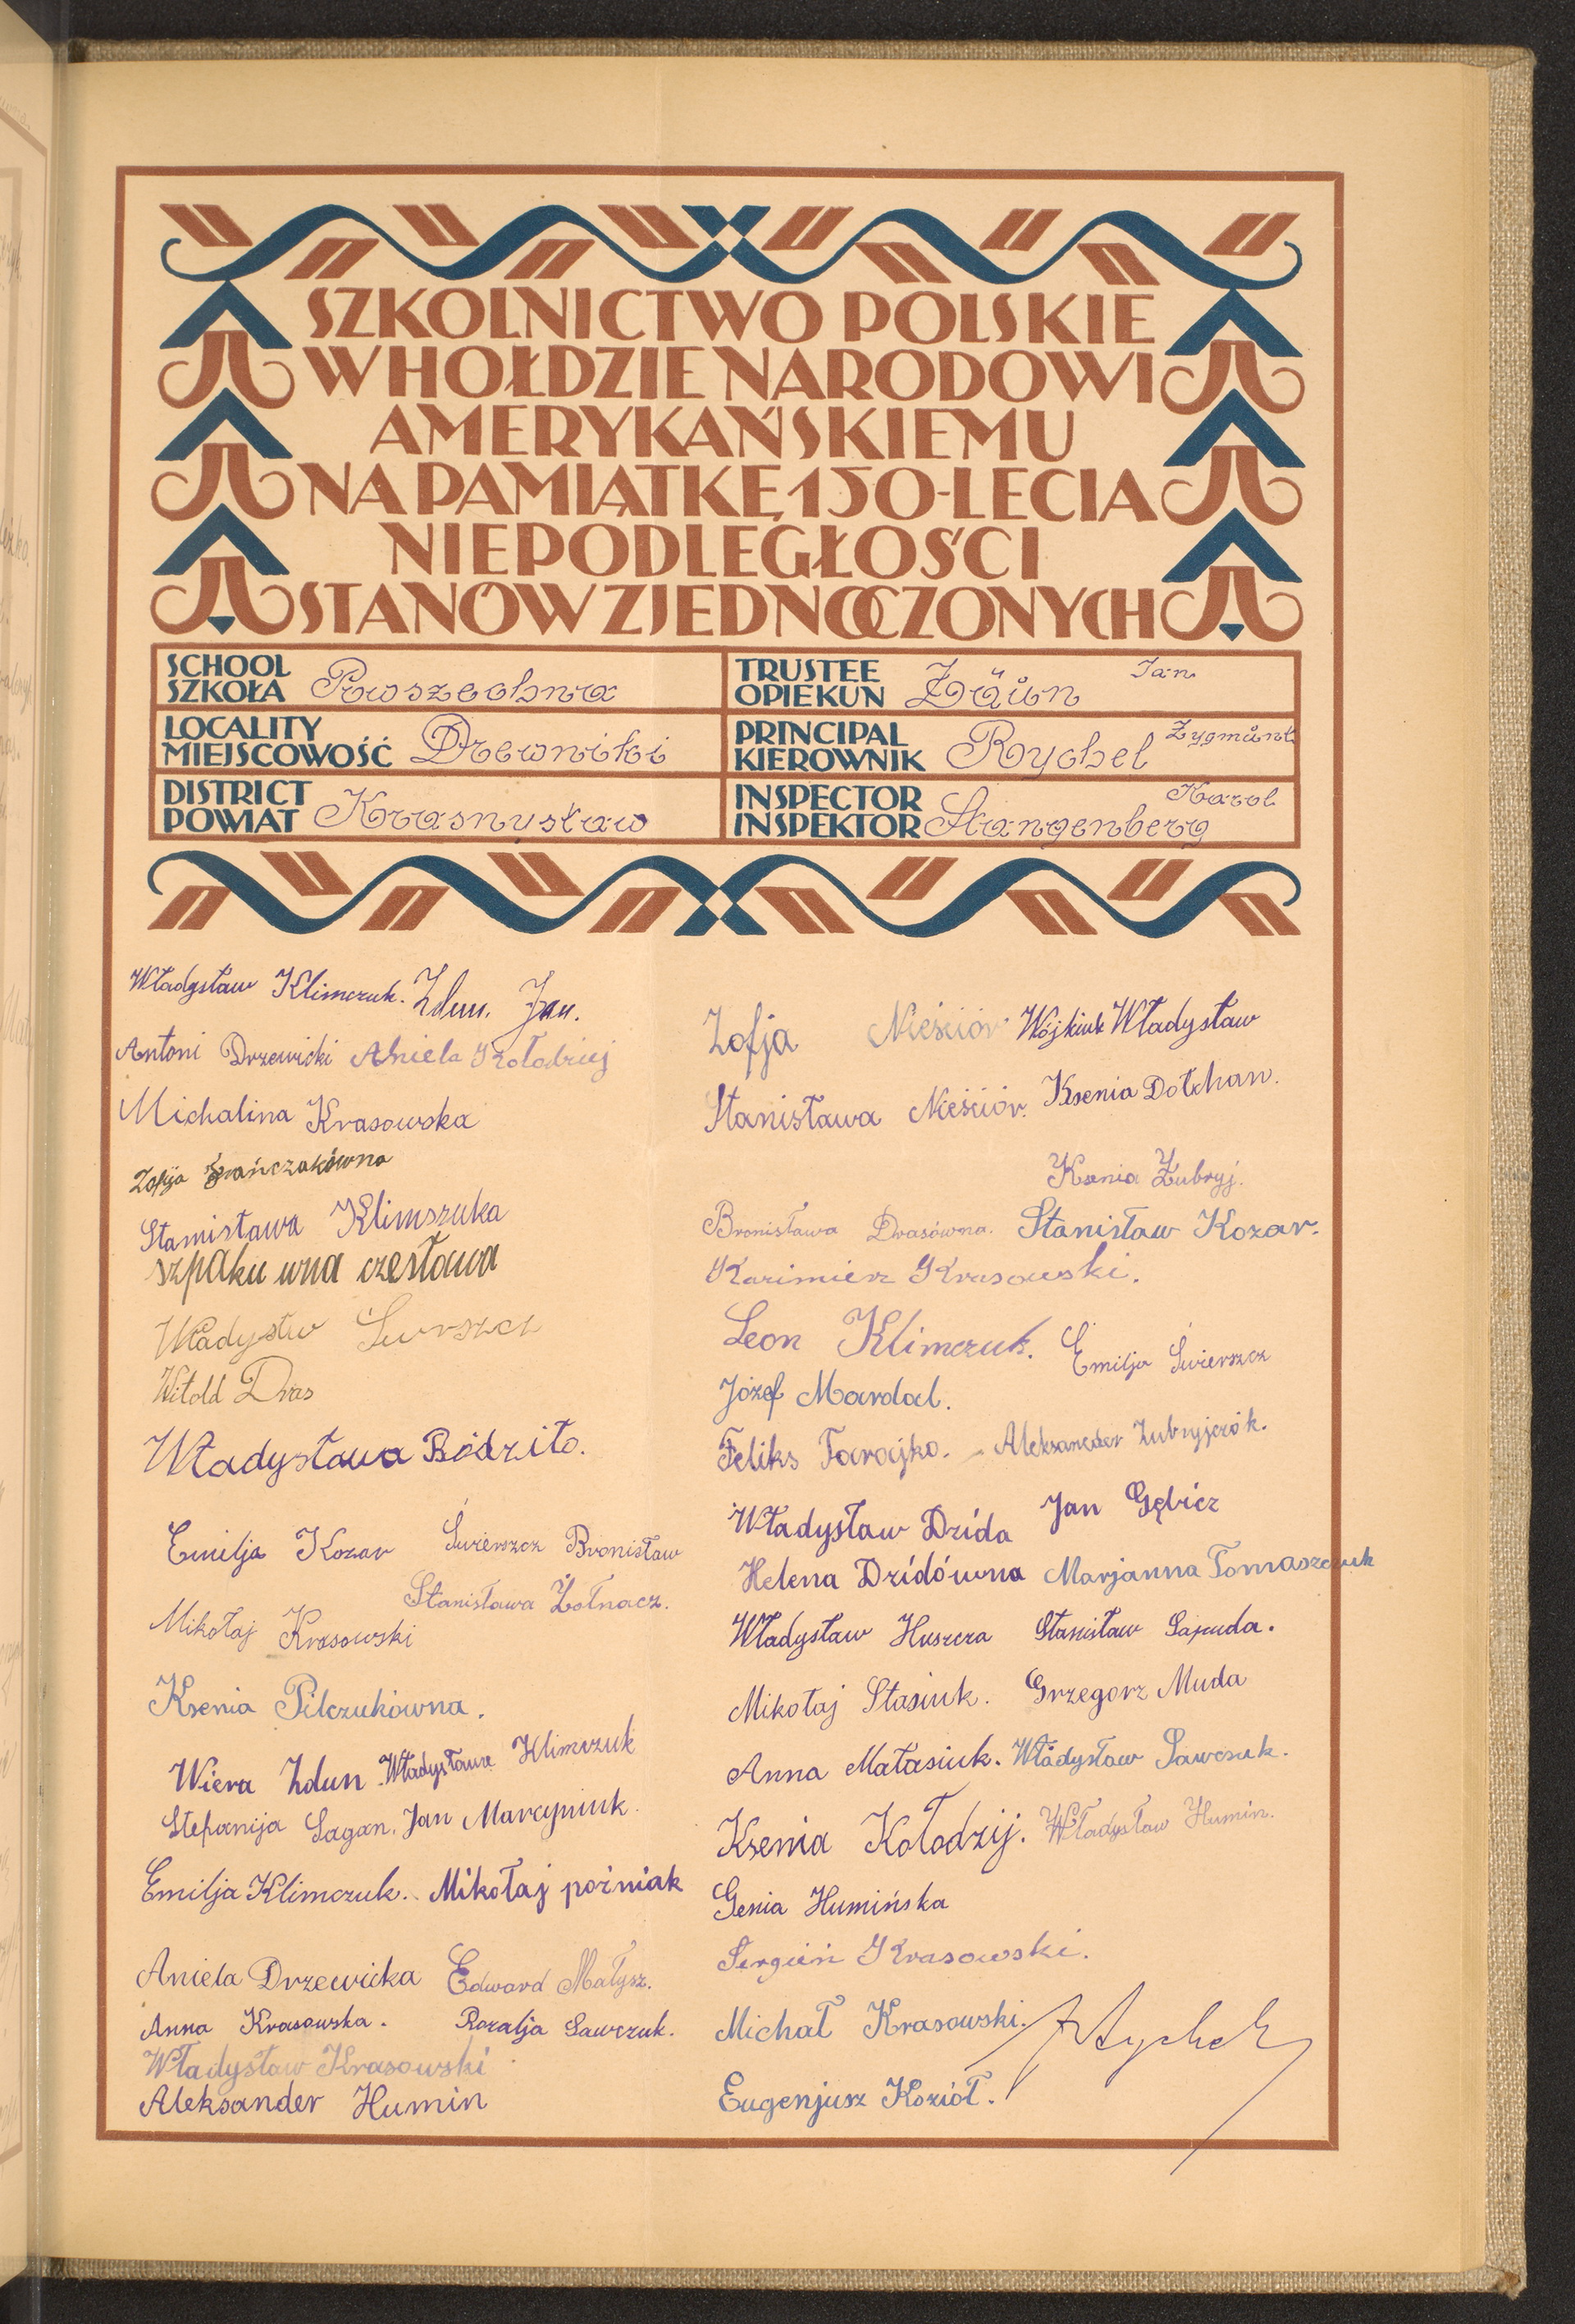 SZKOLNICTWO POLSKIE
W HOŁDZIE NARODOWI
AMERYKAŃSKIEMU
NA PAMIĄTKĘ 150-LECIA
NIEPODLEGŁOŚCI
STANÓW ZJEDNOCZONYCH
SCHOOL
SZKOŁA Powszechna
TRUSTEE
OPIEKUN Zdŭn Jan
LOCALITY
MIEJSCOWOŚĆ Drewniki
PRINCIPAL
KIEROWNIK Rychel Zygmŭnt
DISTRICT
POWIAT Krasnystaw
INSPECTOR
INSPEKTOR Stangenberg Karol
Władysław Klimczuk. Zdun. Jan.
Antoni Drzewicki Aniela Kołodziej
Michalina Krasowska
Zofija Frańczakówna
Stanisława Klimszuka
szpaku wna czesława
Władystw Swrszcz
Witold Dras
Władysława Bódzito.
Emilja Kozar Świerszcz Bronisław
Stanisława Żołnacz.
Mikołaj Krasowski
Ksenia Pilczukówna.
Wiera Zdun Władysława Klimczuk
Stefanija Sagan. Jan Marcyniuk.
Emilja Klimczuk. Mikołaj poźniak
Aniela Drzewicka Edward Małysz.
Anna Krasowska. Rozalja Sawczuk.
Władysław Krasowski
Aleksander Humin
Zofja Nieściór Wójkiuk Władysław
Stanisława Nieściór. Ksenia Dołchan.
Ksenia Zubryj.
Bronisława Drasówna. Stanisław Kozar.
Kazimierz Krasowski.
Leon Klimczuk. Emilja Świerszcz
Józef Mardal.
Feliks Tarajko. Aleksander Zubryjczók.
Władysław Dzida Jan Gębicz
Helena Dzidówna Marjanna Tomaszczuk
Władysław Huszcza Stanisław Sapuda.
Mikołaj Stasiuk. Grzegorz Muda
Anna Matasiuk. Władysław Sawczuk.
Ksenia Kołodzij. Władysław Humin.
Genia Humińska
Sergiéń Krasowski.
Michał Krasowski. Rychel
Eugenjusz Kozioł.